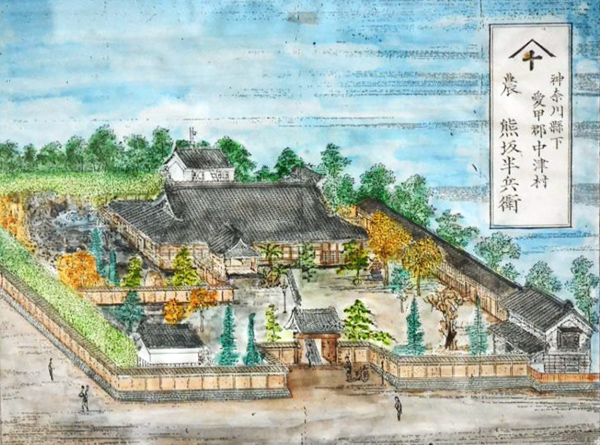 神奈川縣下
愛甲郡中津村
農 熊坂半兵衛